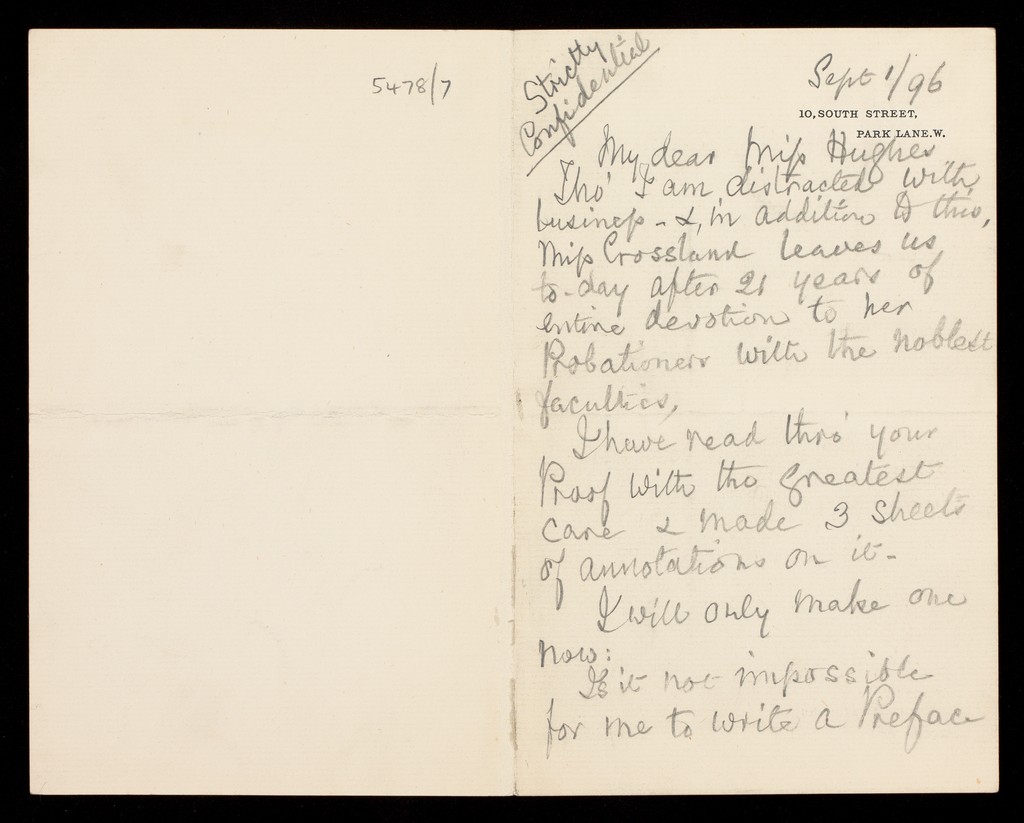 5478/7
Strictly
Confidential
Sept 1/96
10, SOUTH STREET,
PARK LANE. W.
My dear Miss Hughes
Tho' I am distracted with
business - &, in addition to this,
Miss Crossland leaves us
to-day after 21 years of
entire devotion to her
Probationers with the noblest
faculties,
I have read thro' your
Proof with the greatest
care & made 3 sheets
of annotations on it -
I will only make one
now:
Is it not impossible
for me to write a Preface